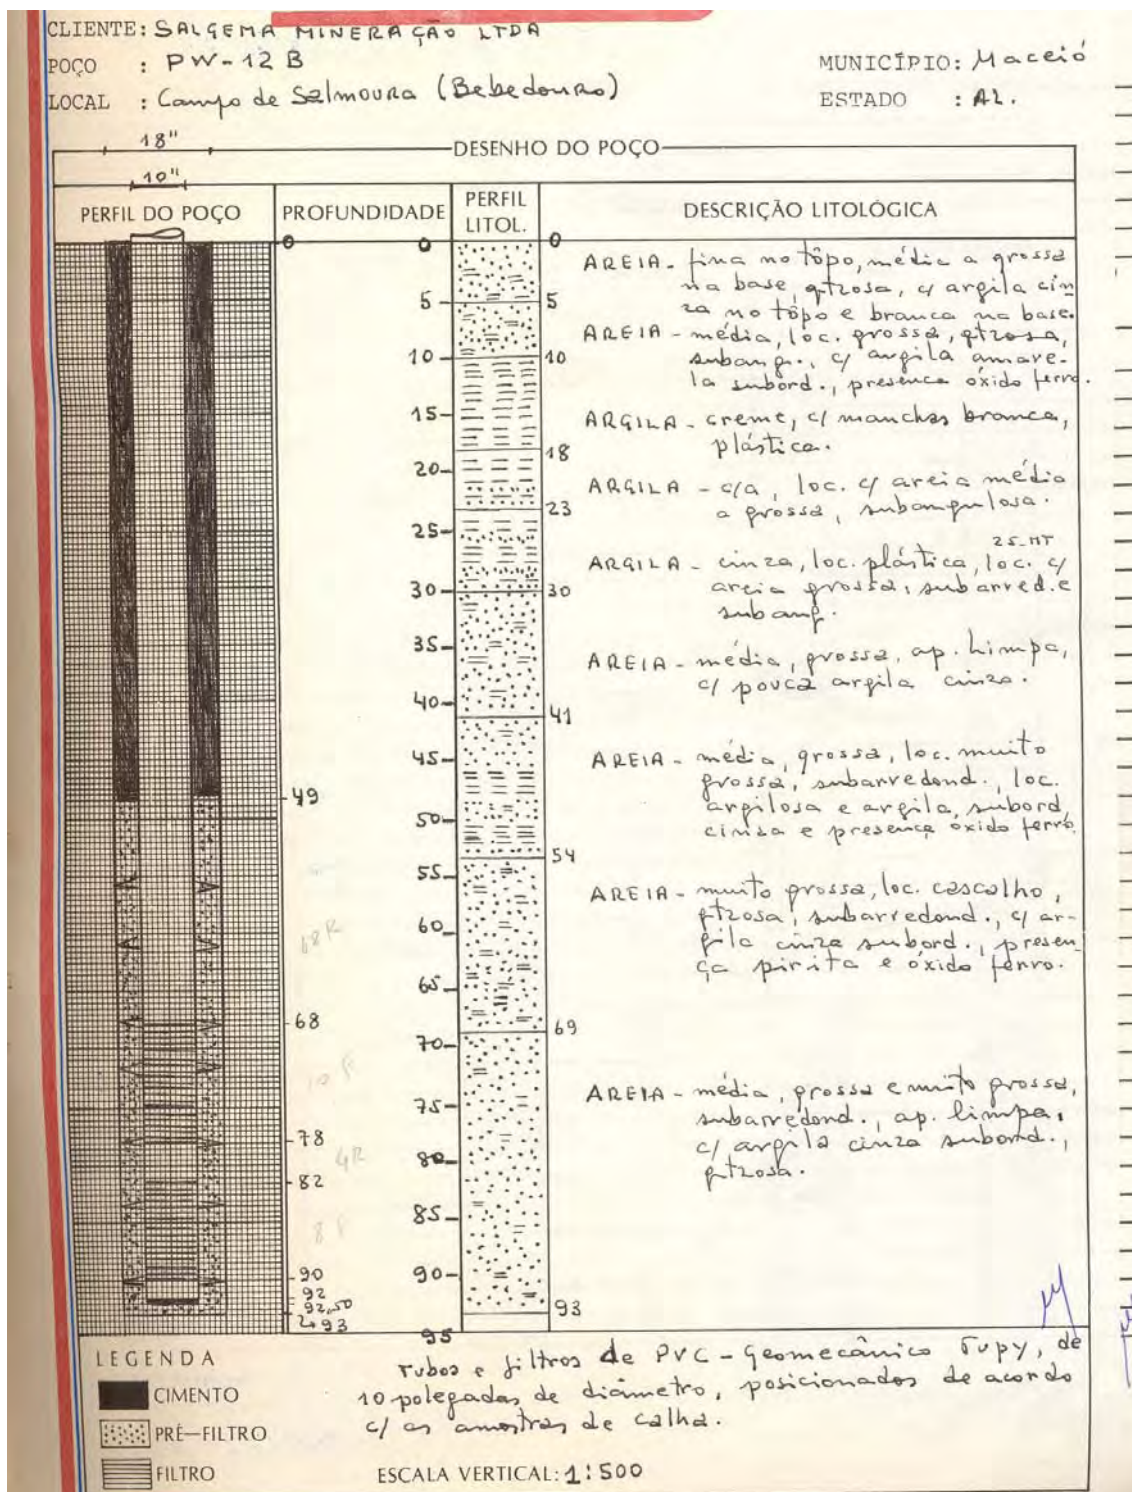 CLIENTE: SALGEMA MINERAÇÃO LTDA
POÇO : PW-12 B
MUNICÍPIO: Maceió
LOCAL : Campo de Salmoura (Bebedouro)
ESTADO : AL.
18"
DESENHO DO POÇO
10"
PERFIL DO POÇO
PROFUNDIDADE
PERFIL
LITOL.
DESCRIÇÃO LITOLÓGICA
0
49
68
78
82
90
92
92,50
93
18 R
10 F
4R
8 F
0
5
10
15
20
25
30
35
40
45
50
55
60
65
70
75
80
85
90
95
0
5
10
18
23
30
41
54
69
93
AREIA - fina no tôpo, média a grossa
na base, qtzosa, c/ argila cin
za no tôpo e branca na base.
AREIA - média, loc. grossa, qtzosa,
subang., c/ argila amare-
la subord., presença óxido ferro.
ARGILA - creme, c/ manchas branca,
plástica.
ARGILA - c/a, loc. c/ areia média
a grossa, subangulosa.
25-MT
ARGILA - cinza, loc. plástica, loc. c/
areia grossa, subarred. e
subang.
AREIA - média, grossa, ap. limpa,
c/ pouca argila cinza.
AREIA - média, grossa, loc. muito
grossa, subarredond., loc.
argilosa e argila, subord,
cinza e presença óxido ferro.
AREIA - muito grossa, loc. cascalho,
qtzosa, subarredond., c/ ar-
gila cinza subord., presen-
ça pirita e óxido ferro.
AREIA - média, grossa e muito grossa,
subarredond., ap. limpa,
c/ argila cinza subord.,
qtzosa.
LEGENDA
CIMENTO
PRÉ-FILTRO
FILTRO
Tubos e filtros de PVC - Geomecânico Tupy, de
10 polegadas de diâmetro, posicionados de acordo
c/ as amostras de calha.
ESCALA VERTICAL: 1:500